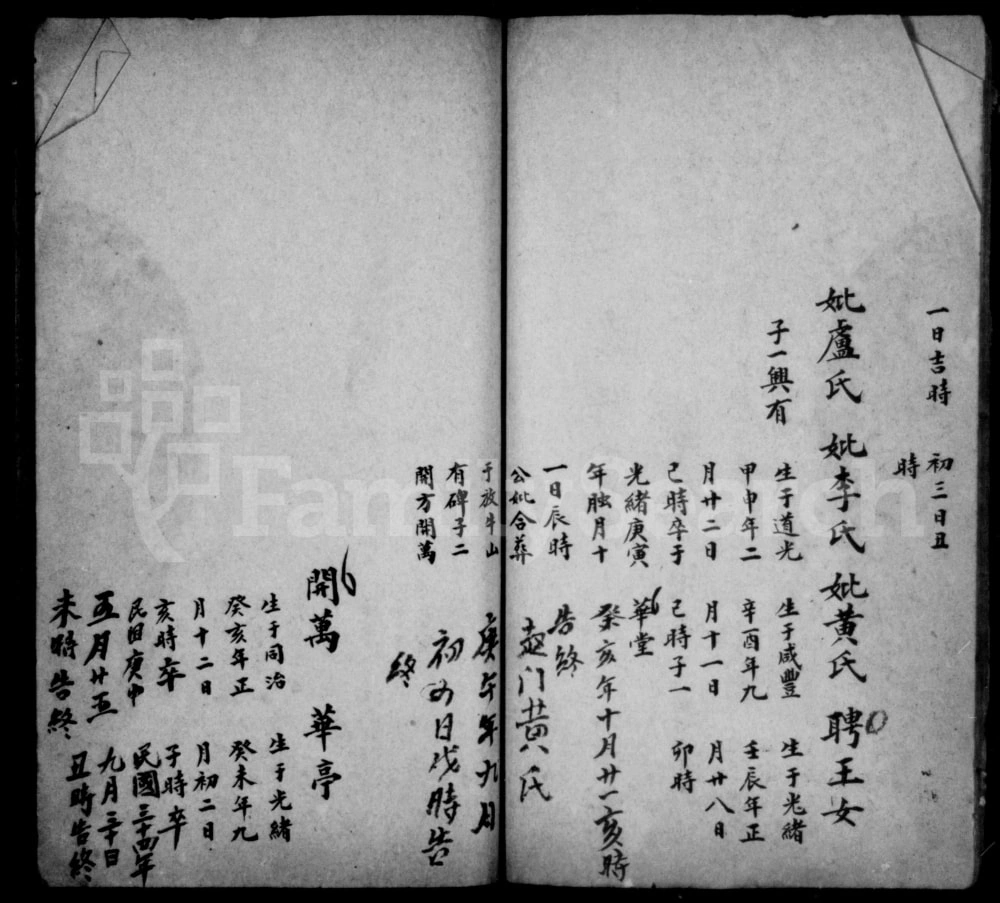 一日吉時
初三日丑
時
妣盧氏
子一興有
妣李氏
生于道光
甲申年二
月廿二日
己時卒于
光緒庚寅
年臘月十
一日辰時
公妣合葬
于放牛山
有碑子二
開方開萬
妣黃氏
生于咸豐
辛酉年九
月十一日
己時子一
華堂
癸亥年十月廿一亥時
告終
聘王女
生于光緒
壬辰年正
月廿八日
卯時
孟門黄氏
庚午年九月
初四日戌時告
終
開萬
生于同治
癸亥年正
月十二日
亥時卒
民国庚申
五月廿五
未時告終
華亭
生于光緒
癸未年九
月初二日
子時卒
民國三十四年
九月三十日
丑時告終
FamilySearch